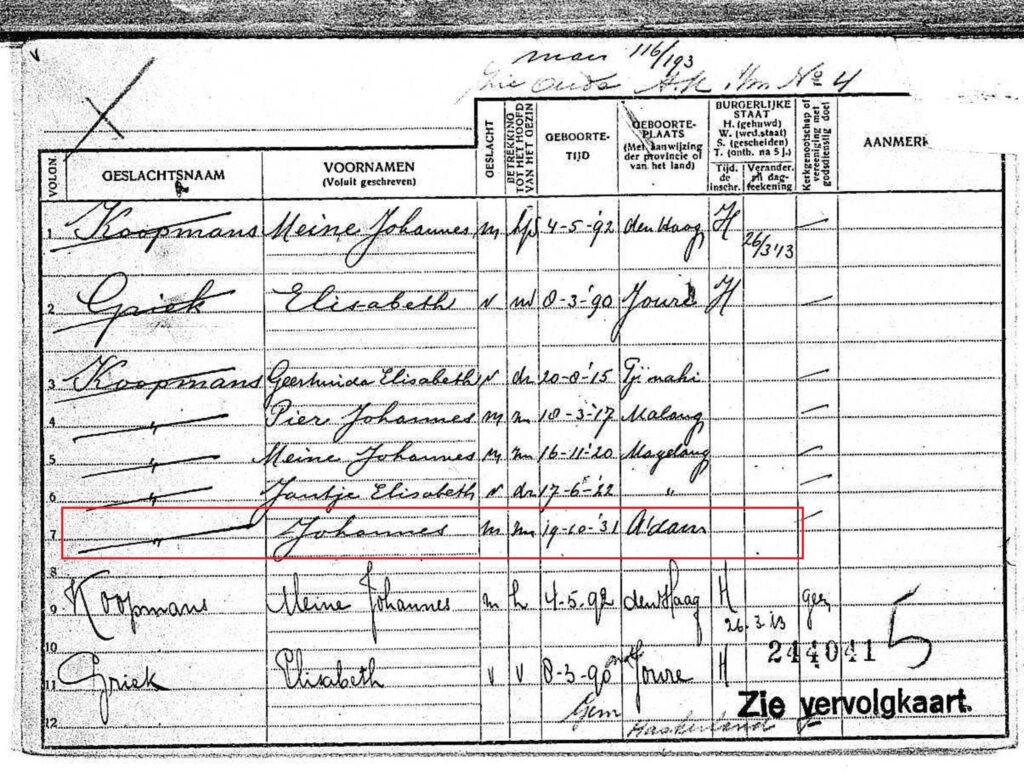 man 116/193
Zie oude A.K. No 4
VOLGN.
GESLACHTSNAAM
VOORNAMEN
(Voluit geschreven)
GESLACHT
BETREKKING TOT HET HOOFD VAN HET GEZIN
GEBOORTE-
TIJD
GEBOORTE-
PLAATS
(Met aanwijzing
der provincie of
van het land)
BURGERLIJKE
STAAT
H. (gehuwd)
W. (wed.staat)
S. (gescheiden)
T. (ontb. na 5 j.)
Tijd.
de
inschr.
Verander.
en dag-
teekening
Kerkgenootschap of
vereeniging met
godsdienstig doel
AANMERK
1 Koopmans Meine Johannes m 4-5-'92 den Haag H
26/3'13
2 Griek Elisabeth v 8-3-'90 Joure H
3 Koopmans Geertruida Elisabeth v dr 20-8-'15 Tjimahi
4 " Pier Johannes m zn 18-3-'17 Malang
5 " Meine Johannes m zn 16-11-'20 Magelang
6 " Jantje Elisabeth v dr 17-6-'22 "
7 " Johannes m zn 19-10-'31 A'dam
8
9 Koopmans Meine Johannes m h 4-5-92 den Haag H geen
26.3.13
10
244041 5
11 Griek Elisabeth v v 8-3-90 Joure H
Gem Haskerland
Zie vervolgkaart.
12